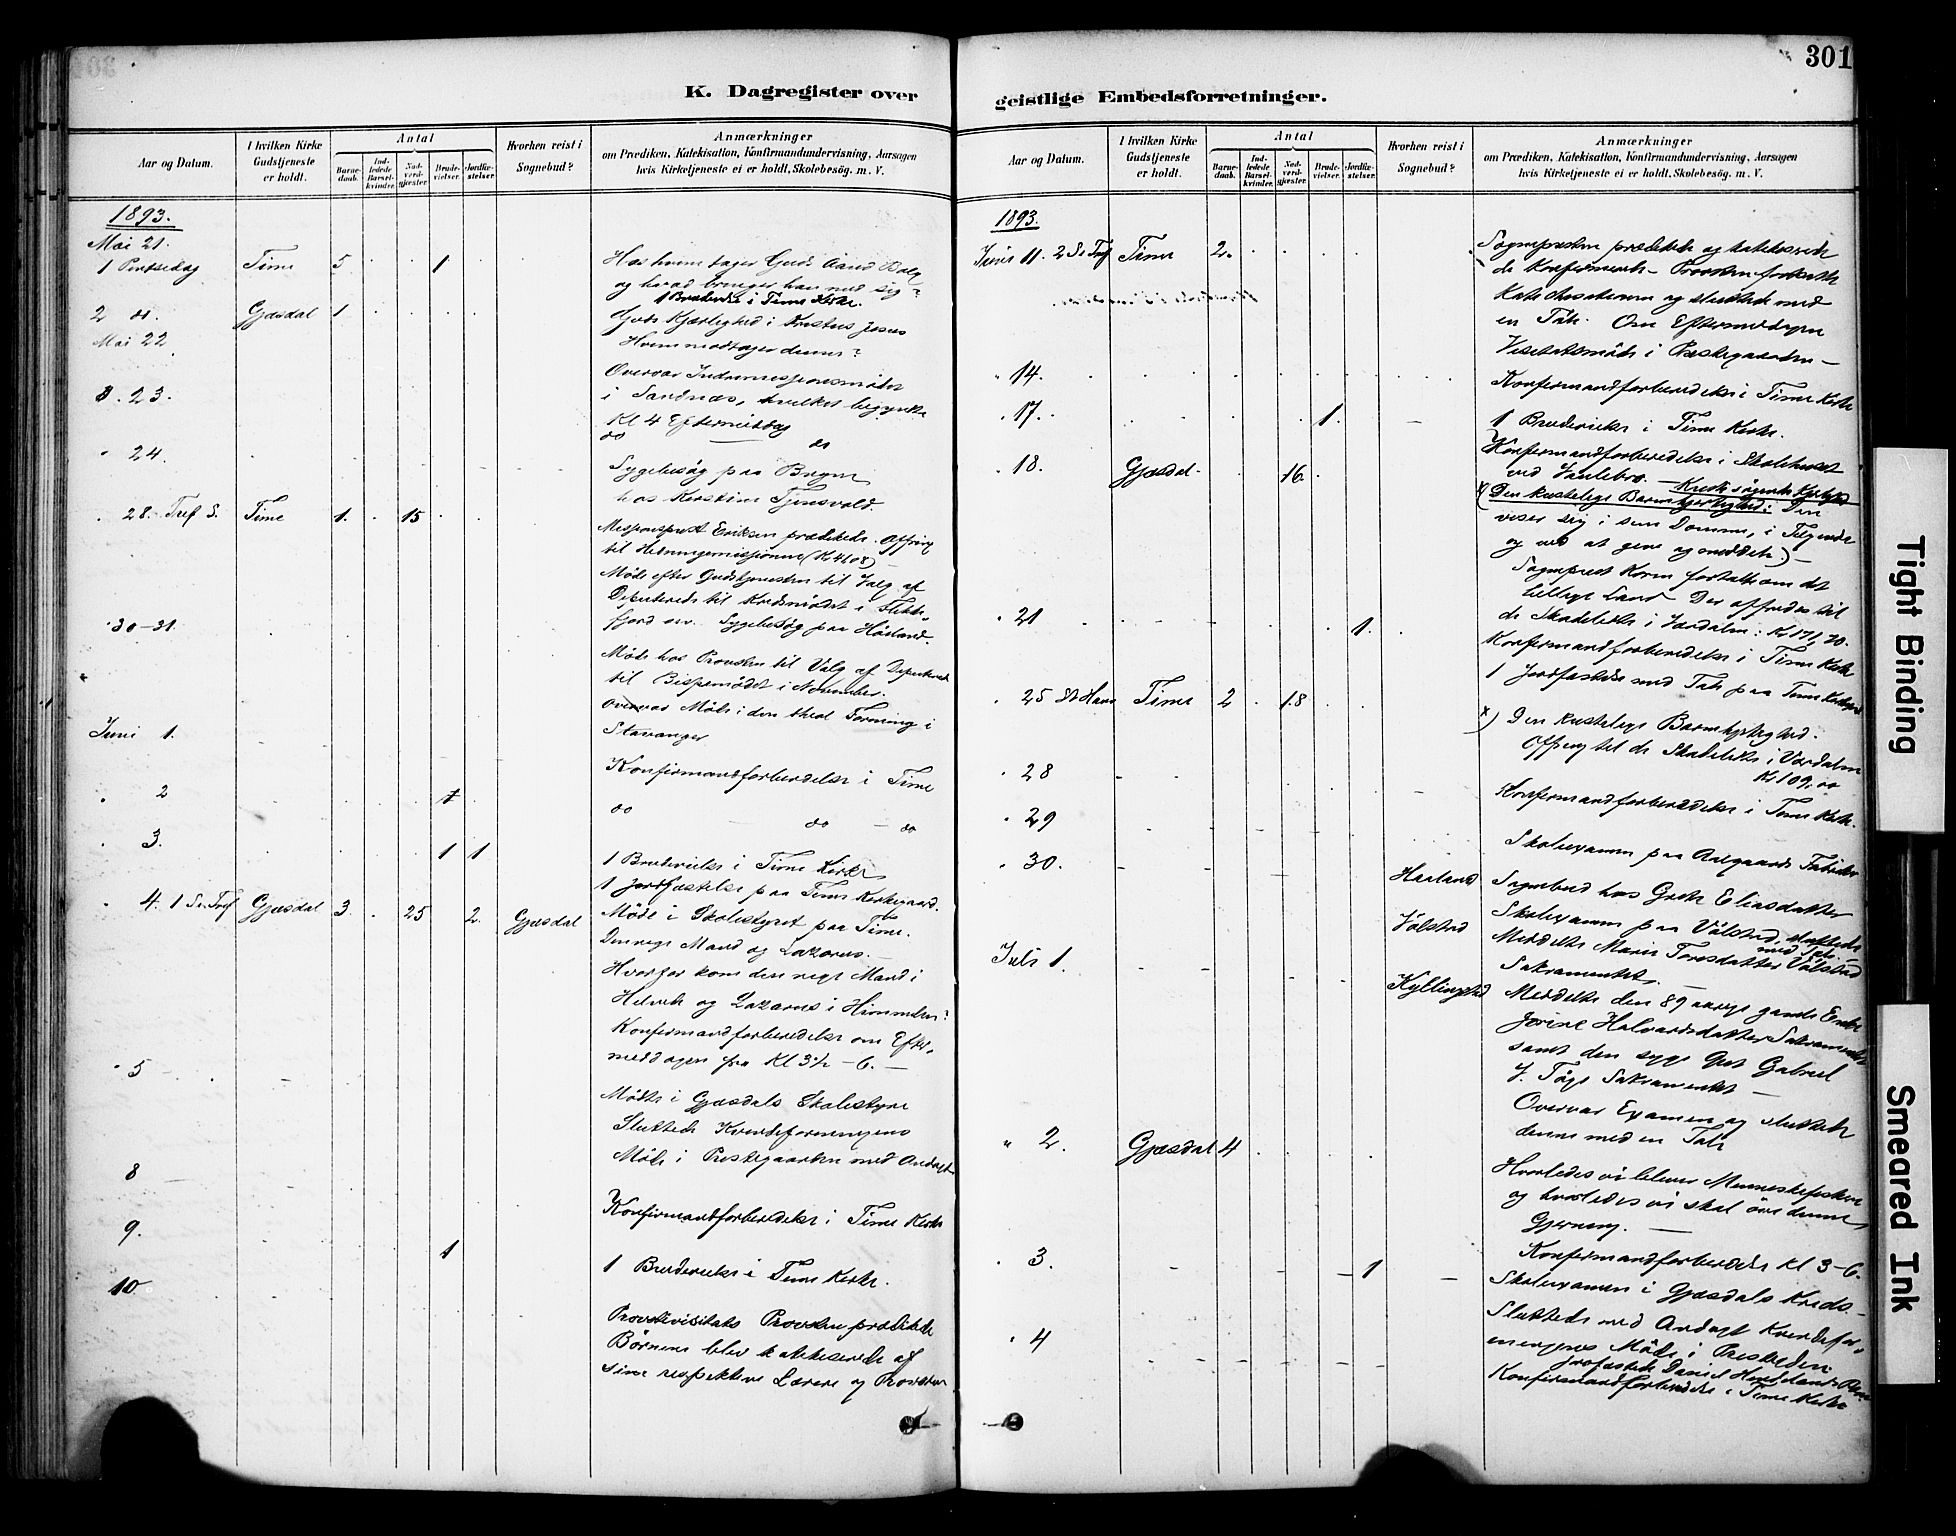 301
K. Dagregister over
geistlige Embedsforretninger.
Aar og Datum.
I hvilken Kirke Gudstjeneste er holdt.
Antal
Barnedaab.
Indledede Barselkvinder.
Nadverdgjester.
Brudevielser.
Jordfæstelser.
Hvorhen reist i Sognebud?
Anmærkninger
om Prædiken, Katekisation, Konfirmandundervisning, Aarsagen
hvis Kirketjeneste ei er holdt, Skolebesög. m. V.
1893.
Mai 21.
1 Pintsedag Time 5 1 Hos hvem tager Guds Aand Bolig
og hvad bringer han med sig?
1 Brudevielse i Time Kirke.
2 do. Gjæsdal 1 Guds Kjærlighed i Kristus Jesus
Mai 22 Hvem modtager denne?
23. Overvar Indremissionsmødet
i Sandnæs, hvilket begyndte
Kl 4 Eftermiddag
24. do do
Sygebesøg paa Bryne
hos
28. Tref. S. Time 1. 15
Missionsprest Eriksen prædikede. Offring
til Hedningemissionen
Møde efter Gudstjenesten til Valg af
Deputerede til Kredsmødet i Flekke-
fjord Sygebesøg paa Høiland
30-31
Møde hos Provsten til Valg af Deputerede
til Bispemødet i November.
Overvar Møde i den theol Forening i
Juni 1. Stavanger
Konfirmandforberedelse i Time
2 1 do do do
3. 1 1 1 Brudevielse i Time Kirke
1 Jordfæstelse paa Time Kirkegaard.
4. 1 S. e. Tref Gjæsdal 3. 25 2. Gjæsdal Møde i Skolestyret paa Time.
Den rige Mand og Lazarus.
Hvorfor kom den rige Mand i
Helvede og Lazarus i Himmelen?
Konfirmandforberedelse om Efter-
middagen fra Kl 3½-6.
5
Mødte i Gjæsdals Skolestyre
Sluttede Kvindeforeningens
Møde i Prestegaarden med Andagt
8
Konfirmandforberedelse i Time Kirke
9. 1
1 Brudevielse i Time Kirke.
10.
Provstevisitats Provsten prædikede
Børnene blev katekiserede af
sine respektive Lærere og Provsten
Aar og Datum.
I hvilken Kirke Gudstjeneste er holdt.
Antal
Barnedaab.
Indledede Barselkvinder.
Nadverdgjester.
Brudevielser.
Jordfæstelser.
Hvorhen reist i Sognebud?
Anmærkninger
om Prædiken, Katekisation, Konfirmandundervisning, Aarsagen
hvis Kirketjeneste ei er holdt, Skolebesög. m. V.
1893.
Juni 11. 2 S. e Tref Time 2. Sognepresten prædikede og katekiserede
de Konfirmerede - Provsten fortsatte
Katechisationen og sluttede med
en Tale. Om Eftermiddagen
Visitatsmøde i Prestegaarden -
14. Konfirmandforberedelse i Time Kirke
17. 1. 1 Brudevielse i Time Kirke.
18. Gjæsdal 16 Konfirmandforberedelse i Skolehuset
ved
x) Den kristelige Barmhjertighed: Den
viser sig i sin Dommen, i Tilgivelse
og ved at give og meddele.)
Sogneprest Koren fortalte om det
hellige Land. Der offredes til
de Skadelidte i Værdalen: Kr 171,20.
21 1. Konfirmandforberedelse i Time Kirke
1 Jordfæstelse med Tale paa Time Kirkegaard
25 St Hans Time 2 18 x) Den kristelige Barmhjertighed.
Offring til de Skadelidte i Værdalen
Kr 109,00
28 Konfirmandforberedelse i Time Kirke.
29 Skolexamen paa Aalgaards Fabrikker
30. Haaland Sognebud hos Grete Eliasdatter
Vølstad Skolexamen paa Vølstad, sluttede
med Tale.
Meddelte Maren Toresdatter Vølstad
Juli 1. Sakramentet.
Kyllingstad Meddelte den 89 aarige gamle Enke
Jorine Halvardsdatter Sakramentet
samt den syge Gut Gabriel
J. Sakramentet
Overvar Examen og sluttede
denne med en Tale
2. Gjæsdal 4
Hvorledes vi bliver Menneskefiskere
og hvorledes vi skal øve denne
Gjerning.
Konfirmandforberedelse Kl 3-6.
3. 1 Skolexamen i Gjæsdals Kreds.
Sluttede med Andagt Kvindefor-
eningens Møde i Prestegaarden.
4 Jordfæstede Daniel
Konfirmandforberedelse i Time Kirke
Tight Binding
Smeared Ink